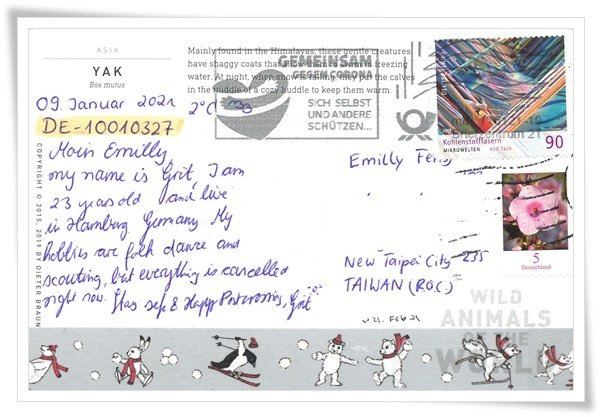 ASIA
YAK
Bos mutus
Mainly found in the Himalayas, these gentle creatures
have shaggy coats that allow them to swim in freezing
water. At night, when snow is falling, they put the calves
in the middle of a cozy huddle to keep them warm.
GEMEINSAM
GEGEN CORONA
SICH SELBST
UND ANDERE
SCHÜTZEN...
09. Januar 2021 2°C
DE-10010327
Moin Emilly
my name is Grit, I am
23 years old and live
in Hamburg Germany. My
hobbies are folk dance and
scouting, but everything is cancelled
right now. Stay safe & Happy Postcrossing, Grit
COPYRIGHT © 2015, 2019 BY DIETER BRAUN
Kohlenstofffasern
MIKROWELTEN 450-fach
90
Briefzentrum 21
Phlox
5
Deutschland
Emilly Feng
New Taipei City 235
TAIWAN (ROC)
21. Feb 21
WILD
ANIMALS
OF THE
WORLD